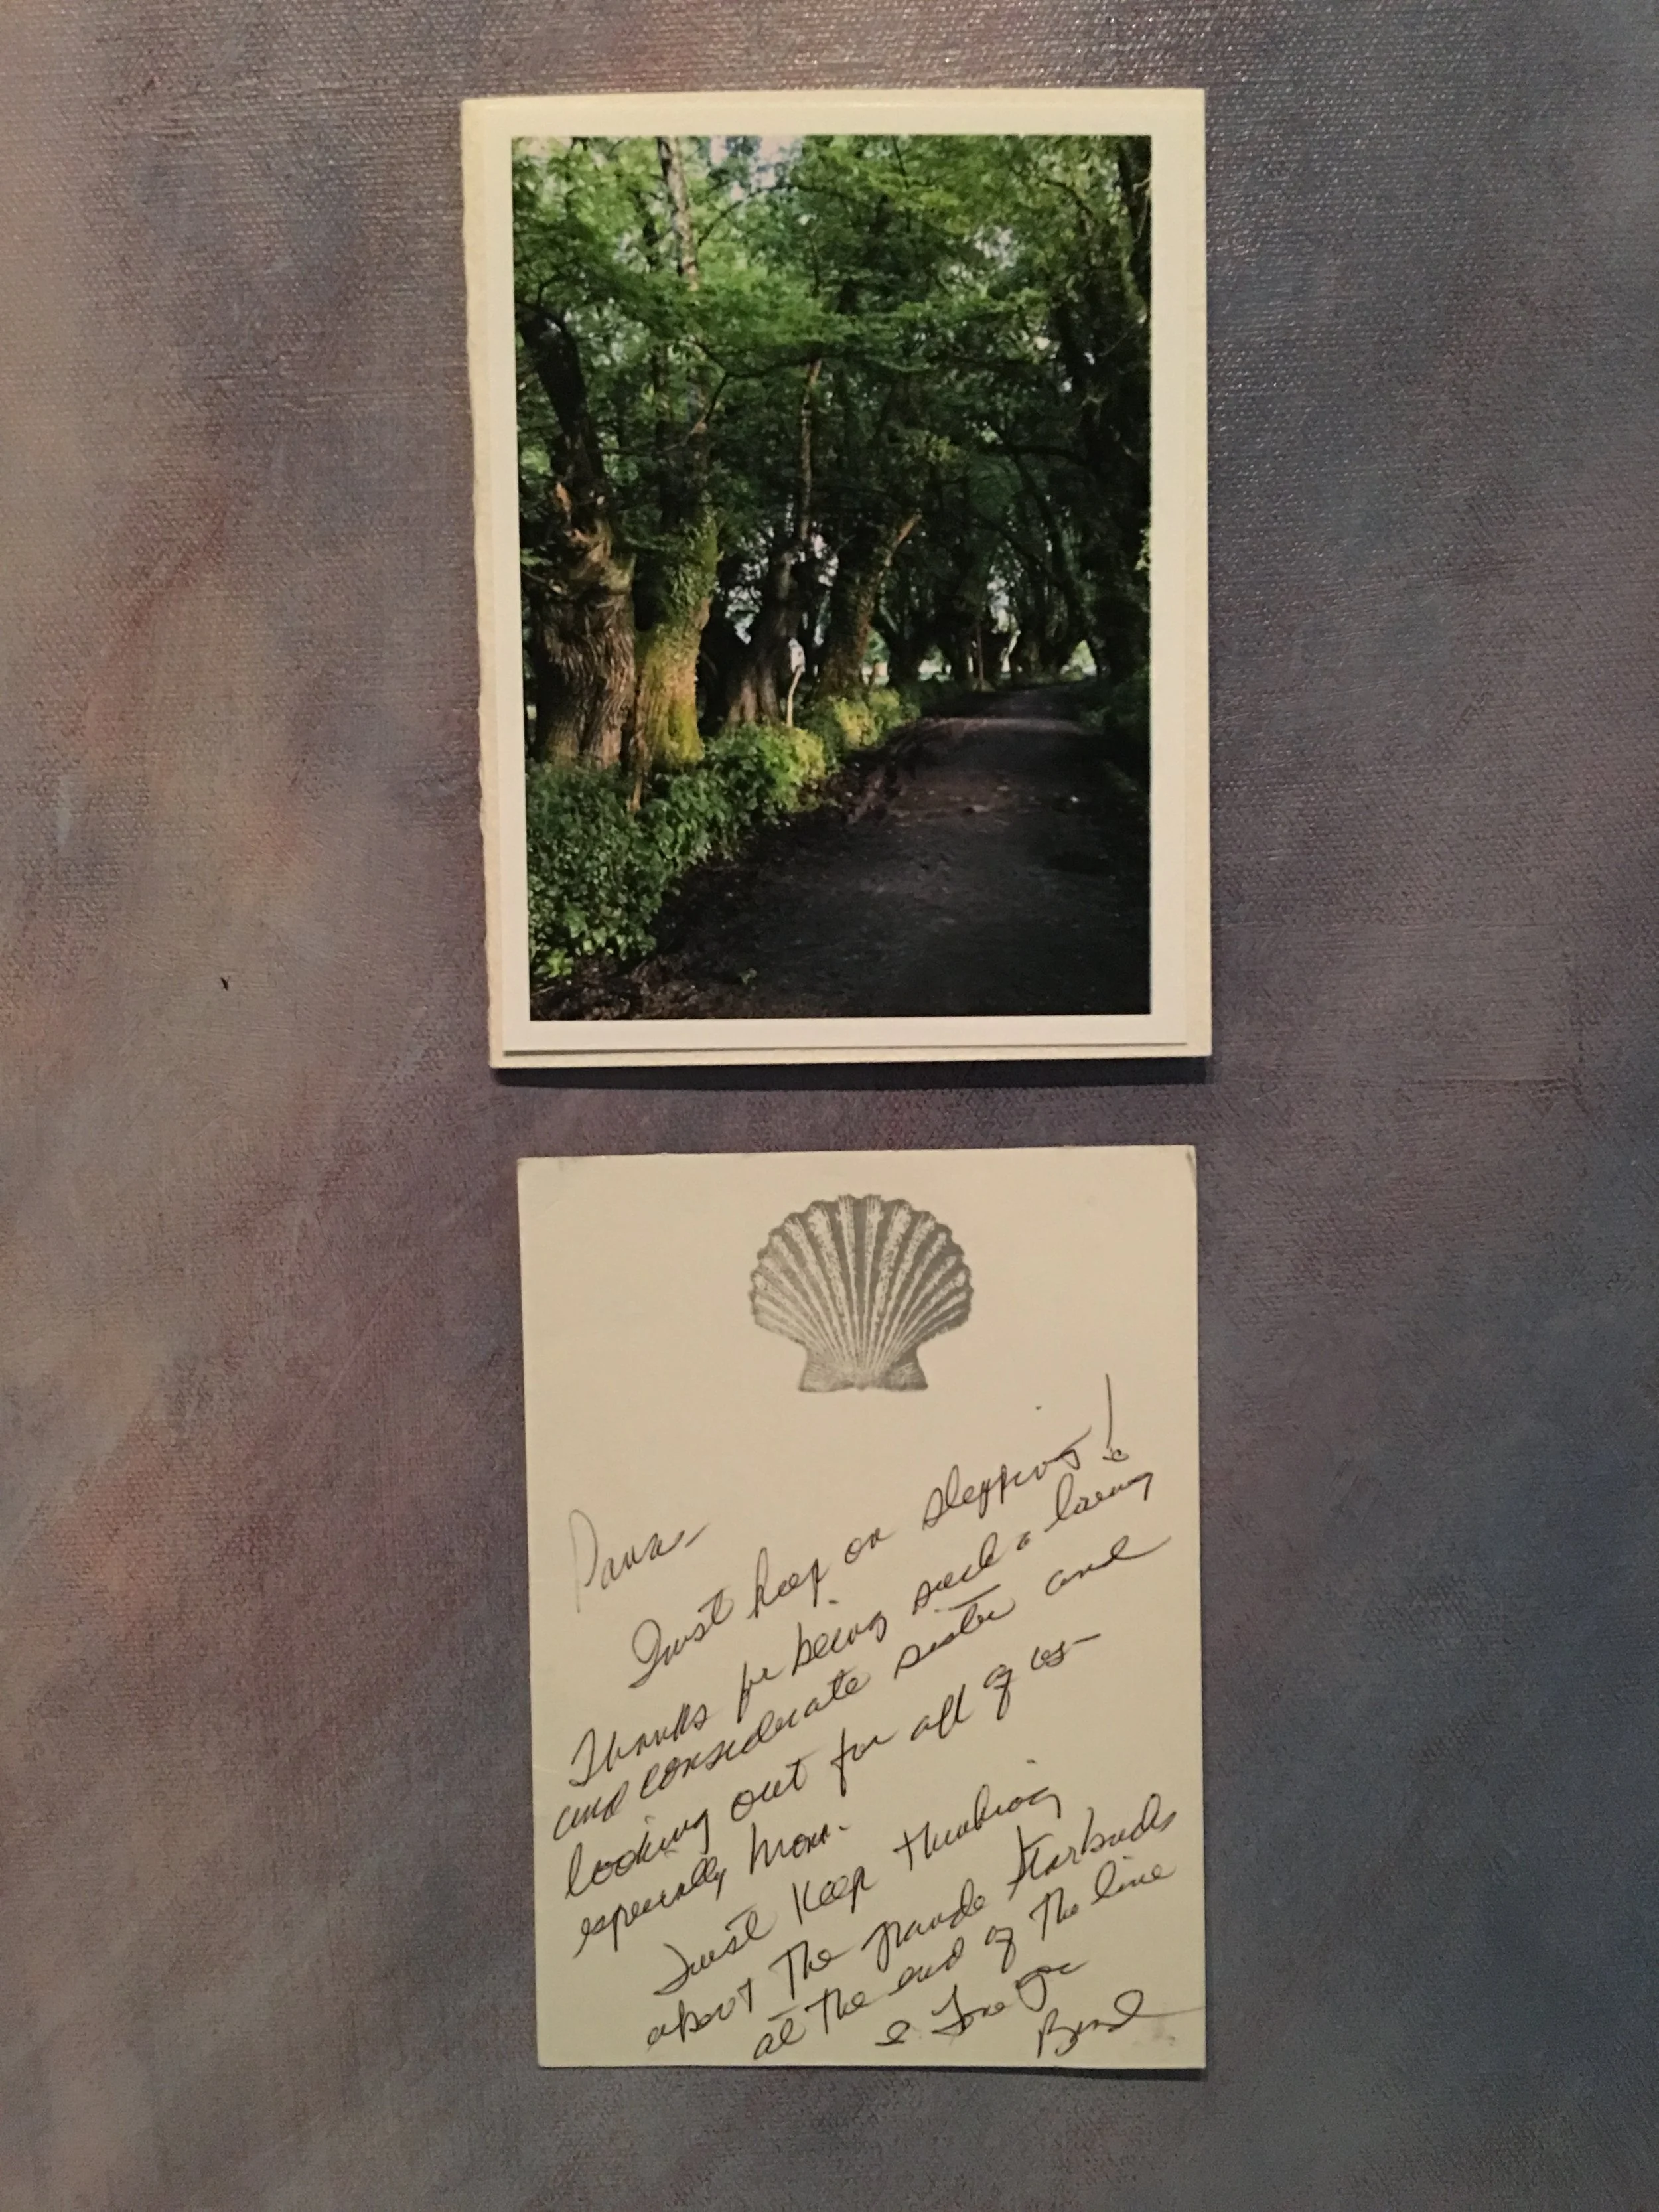 Just keep on stepping!
Thanks for being such a loving
and considerate sister and
looking out for all of us-
especially Mom.
Just keep thinking
about the grande Starbucks
at the end of the line
I Love you